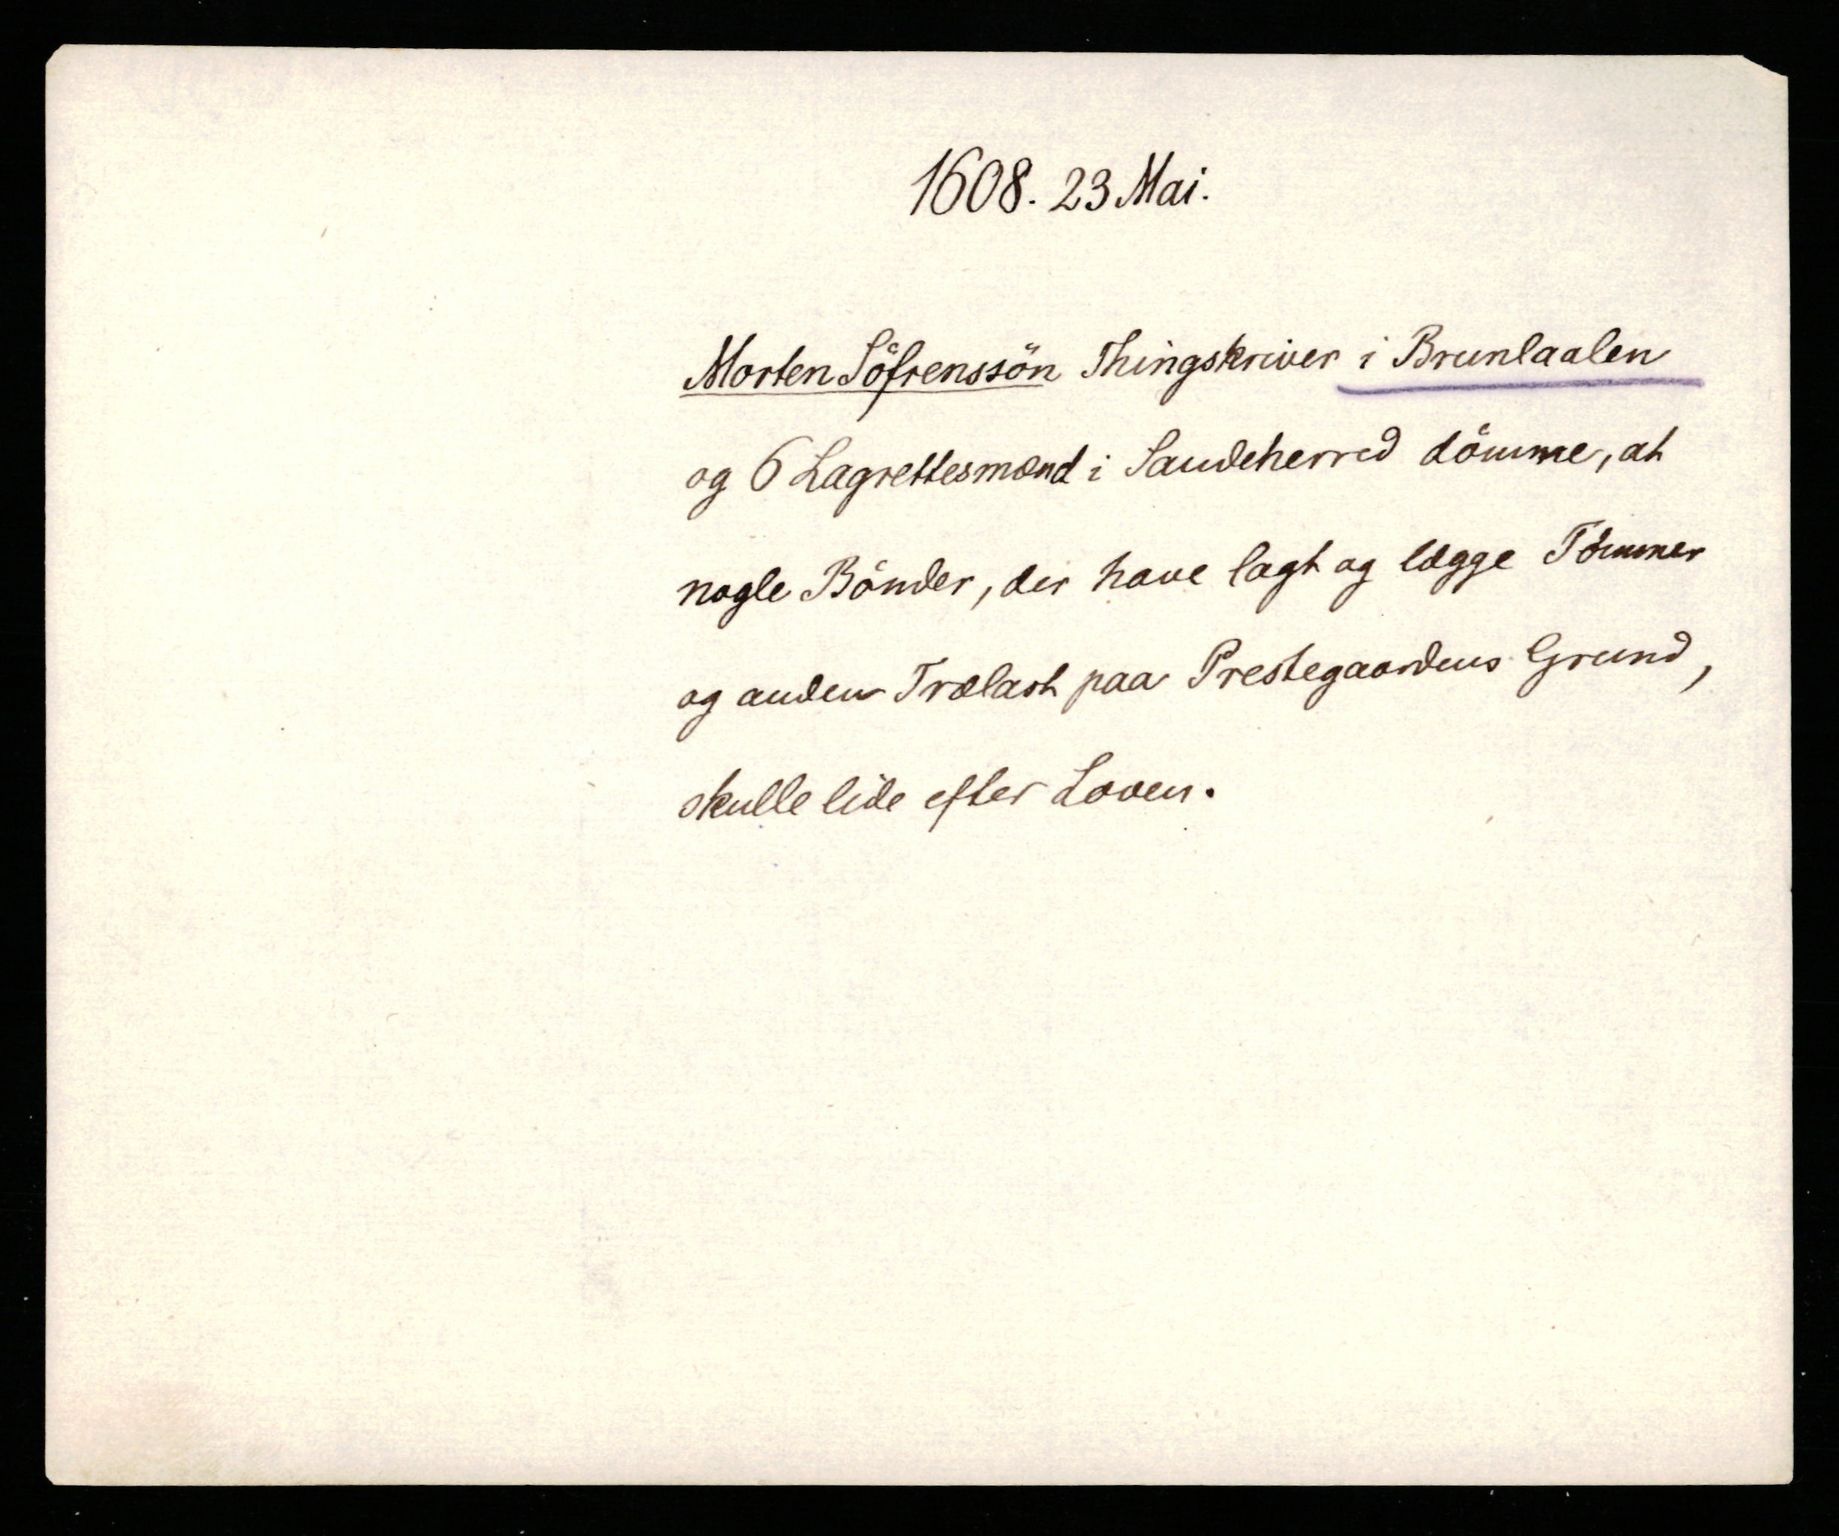 1608. 23 Mai.
Morten Söfrenssön Thingskriver i Brunlaalen
og 6 Lagrettesmænd i Saudeherred dömme, at
nogle Bönder, der have lagt og lægge Tömmer
og anden Trælast paa Prestegaardens Grund,
skulle lide efter Loven.